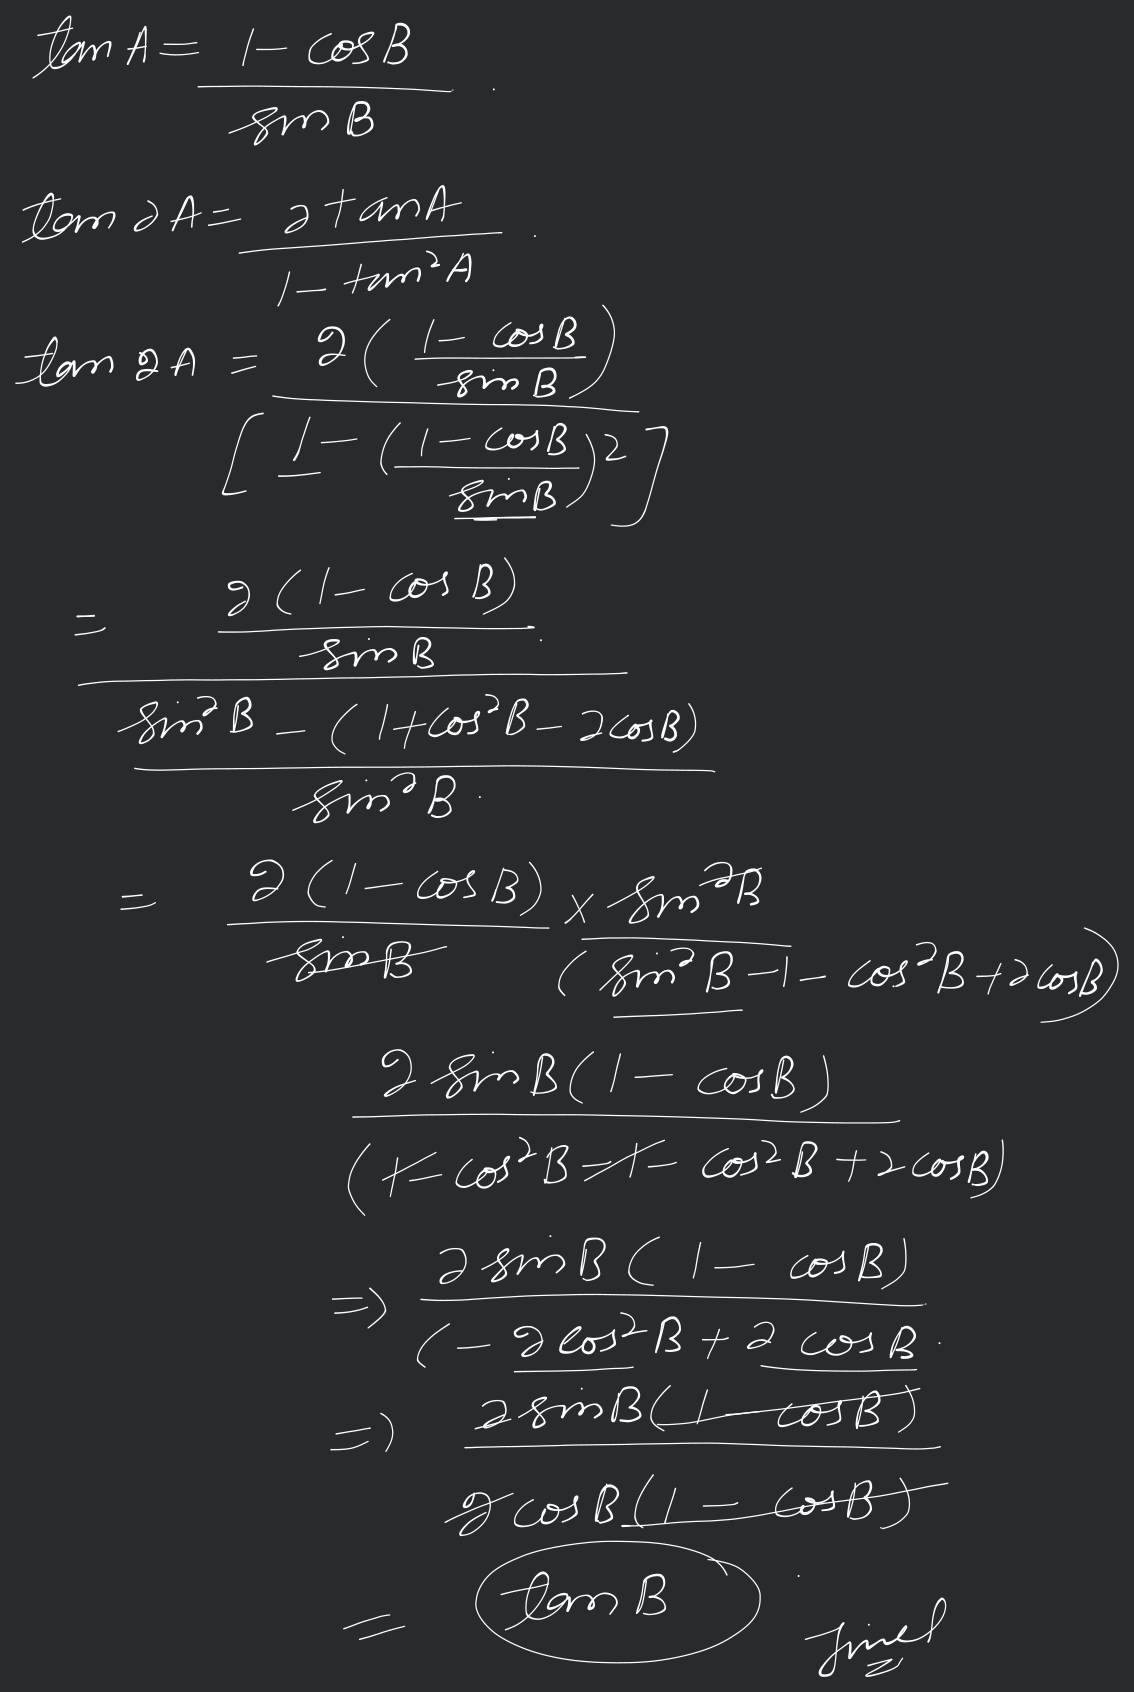 tan A = 1 - cos B
sin B
tan 2A = 2 tan A
1 - tan² A
tan 2A = 2 ( 1 - cos B
sin B )
[ 1 - ( 1 - cos B
sin B )² ]
= 2 (1 - cos B)
sin B
sin² B - ( 1 + cos² B - 2 cos B)
sin² B
= 2 (1 - cos B) × sin² B
sin B ( sin² B - 1 - cos² B + 2 cos B)
2 sin B (1 - cos B)
(1 - cos² B - 1 - cos² B + 2 cos B)
=> 2 sin B ( 1 - cos B)
( - 2 cos² B + 2 cos B
=> 2 sin B (1 - cos B)
2 cos B (1 - cos B)
= tan B